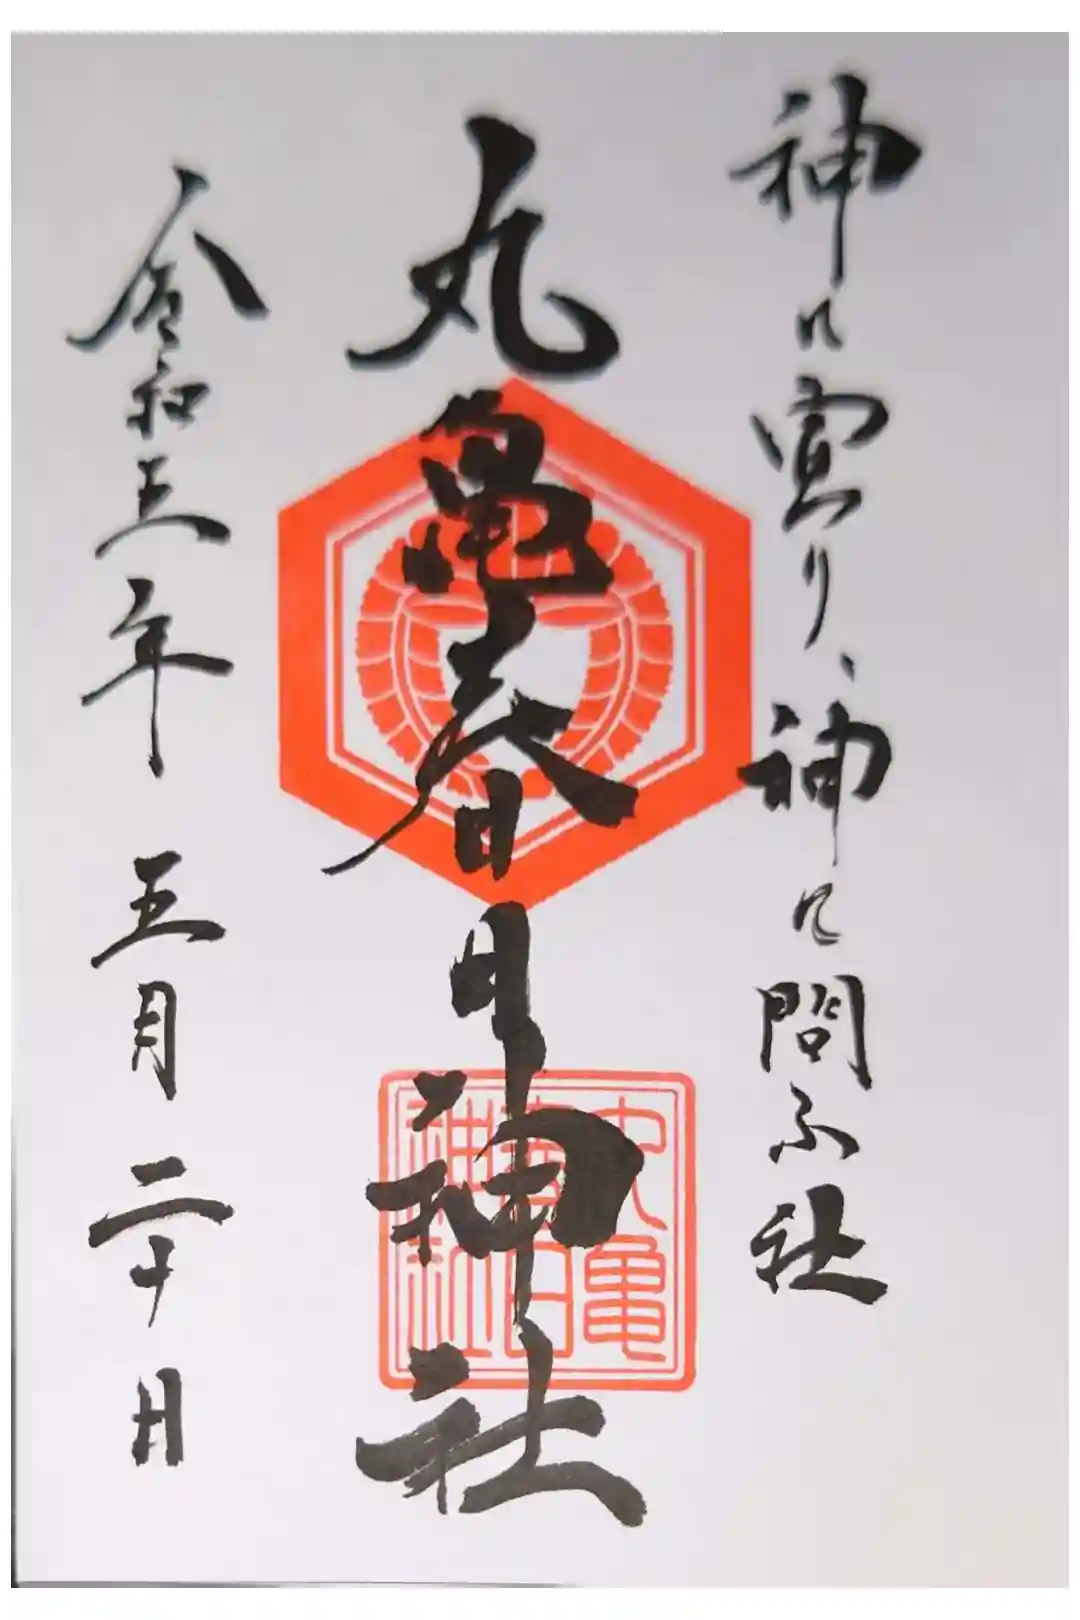 神に り、神に問ふ社
丸亀春日神社
丸亀
春日
神社
令和五年 五月 二十日